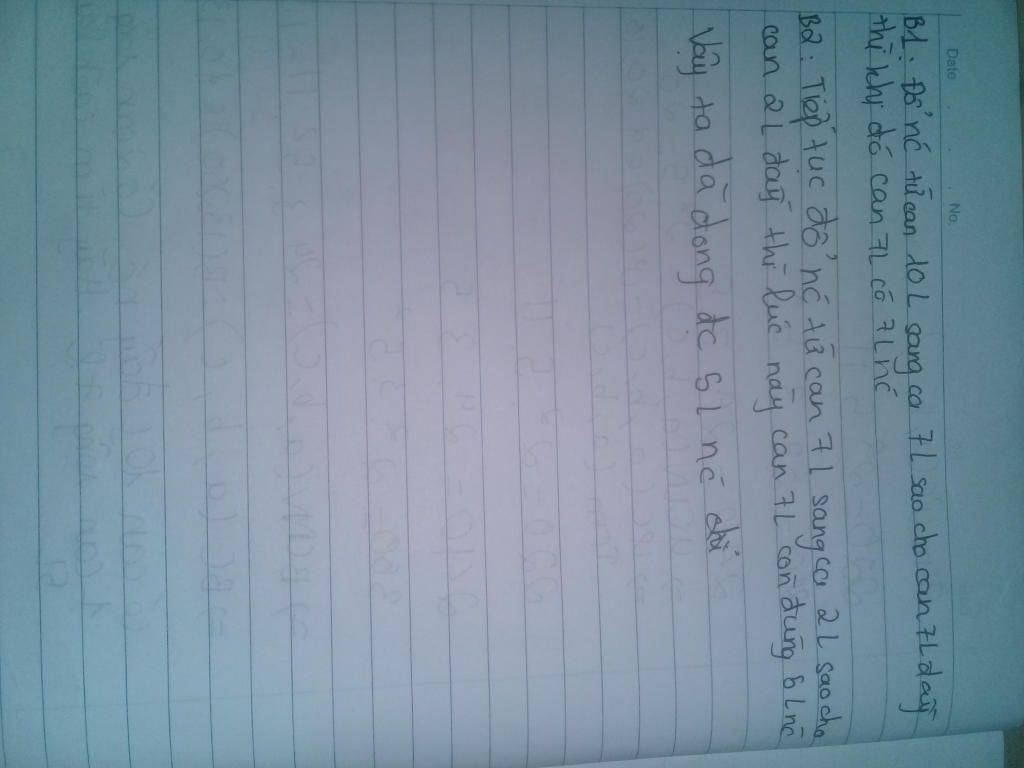 Date . . . No.
B1. Đổ nć từ can 10 L sang ca 7 L sao cho can 7L đầy
thì khi đó can 7L có 7L nć
B2: Tiếp tục đổ nć từ can 7 L sang ca 2 L sao cho
can 2 L đầy thì lúc này can 7L còn đúng 5L nć
Vậy ta đã đong đc 5 L nć